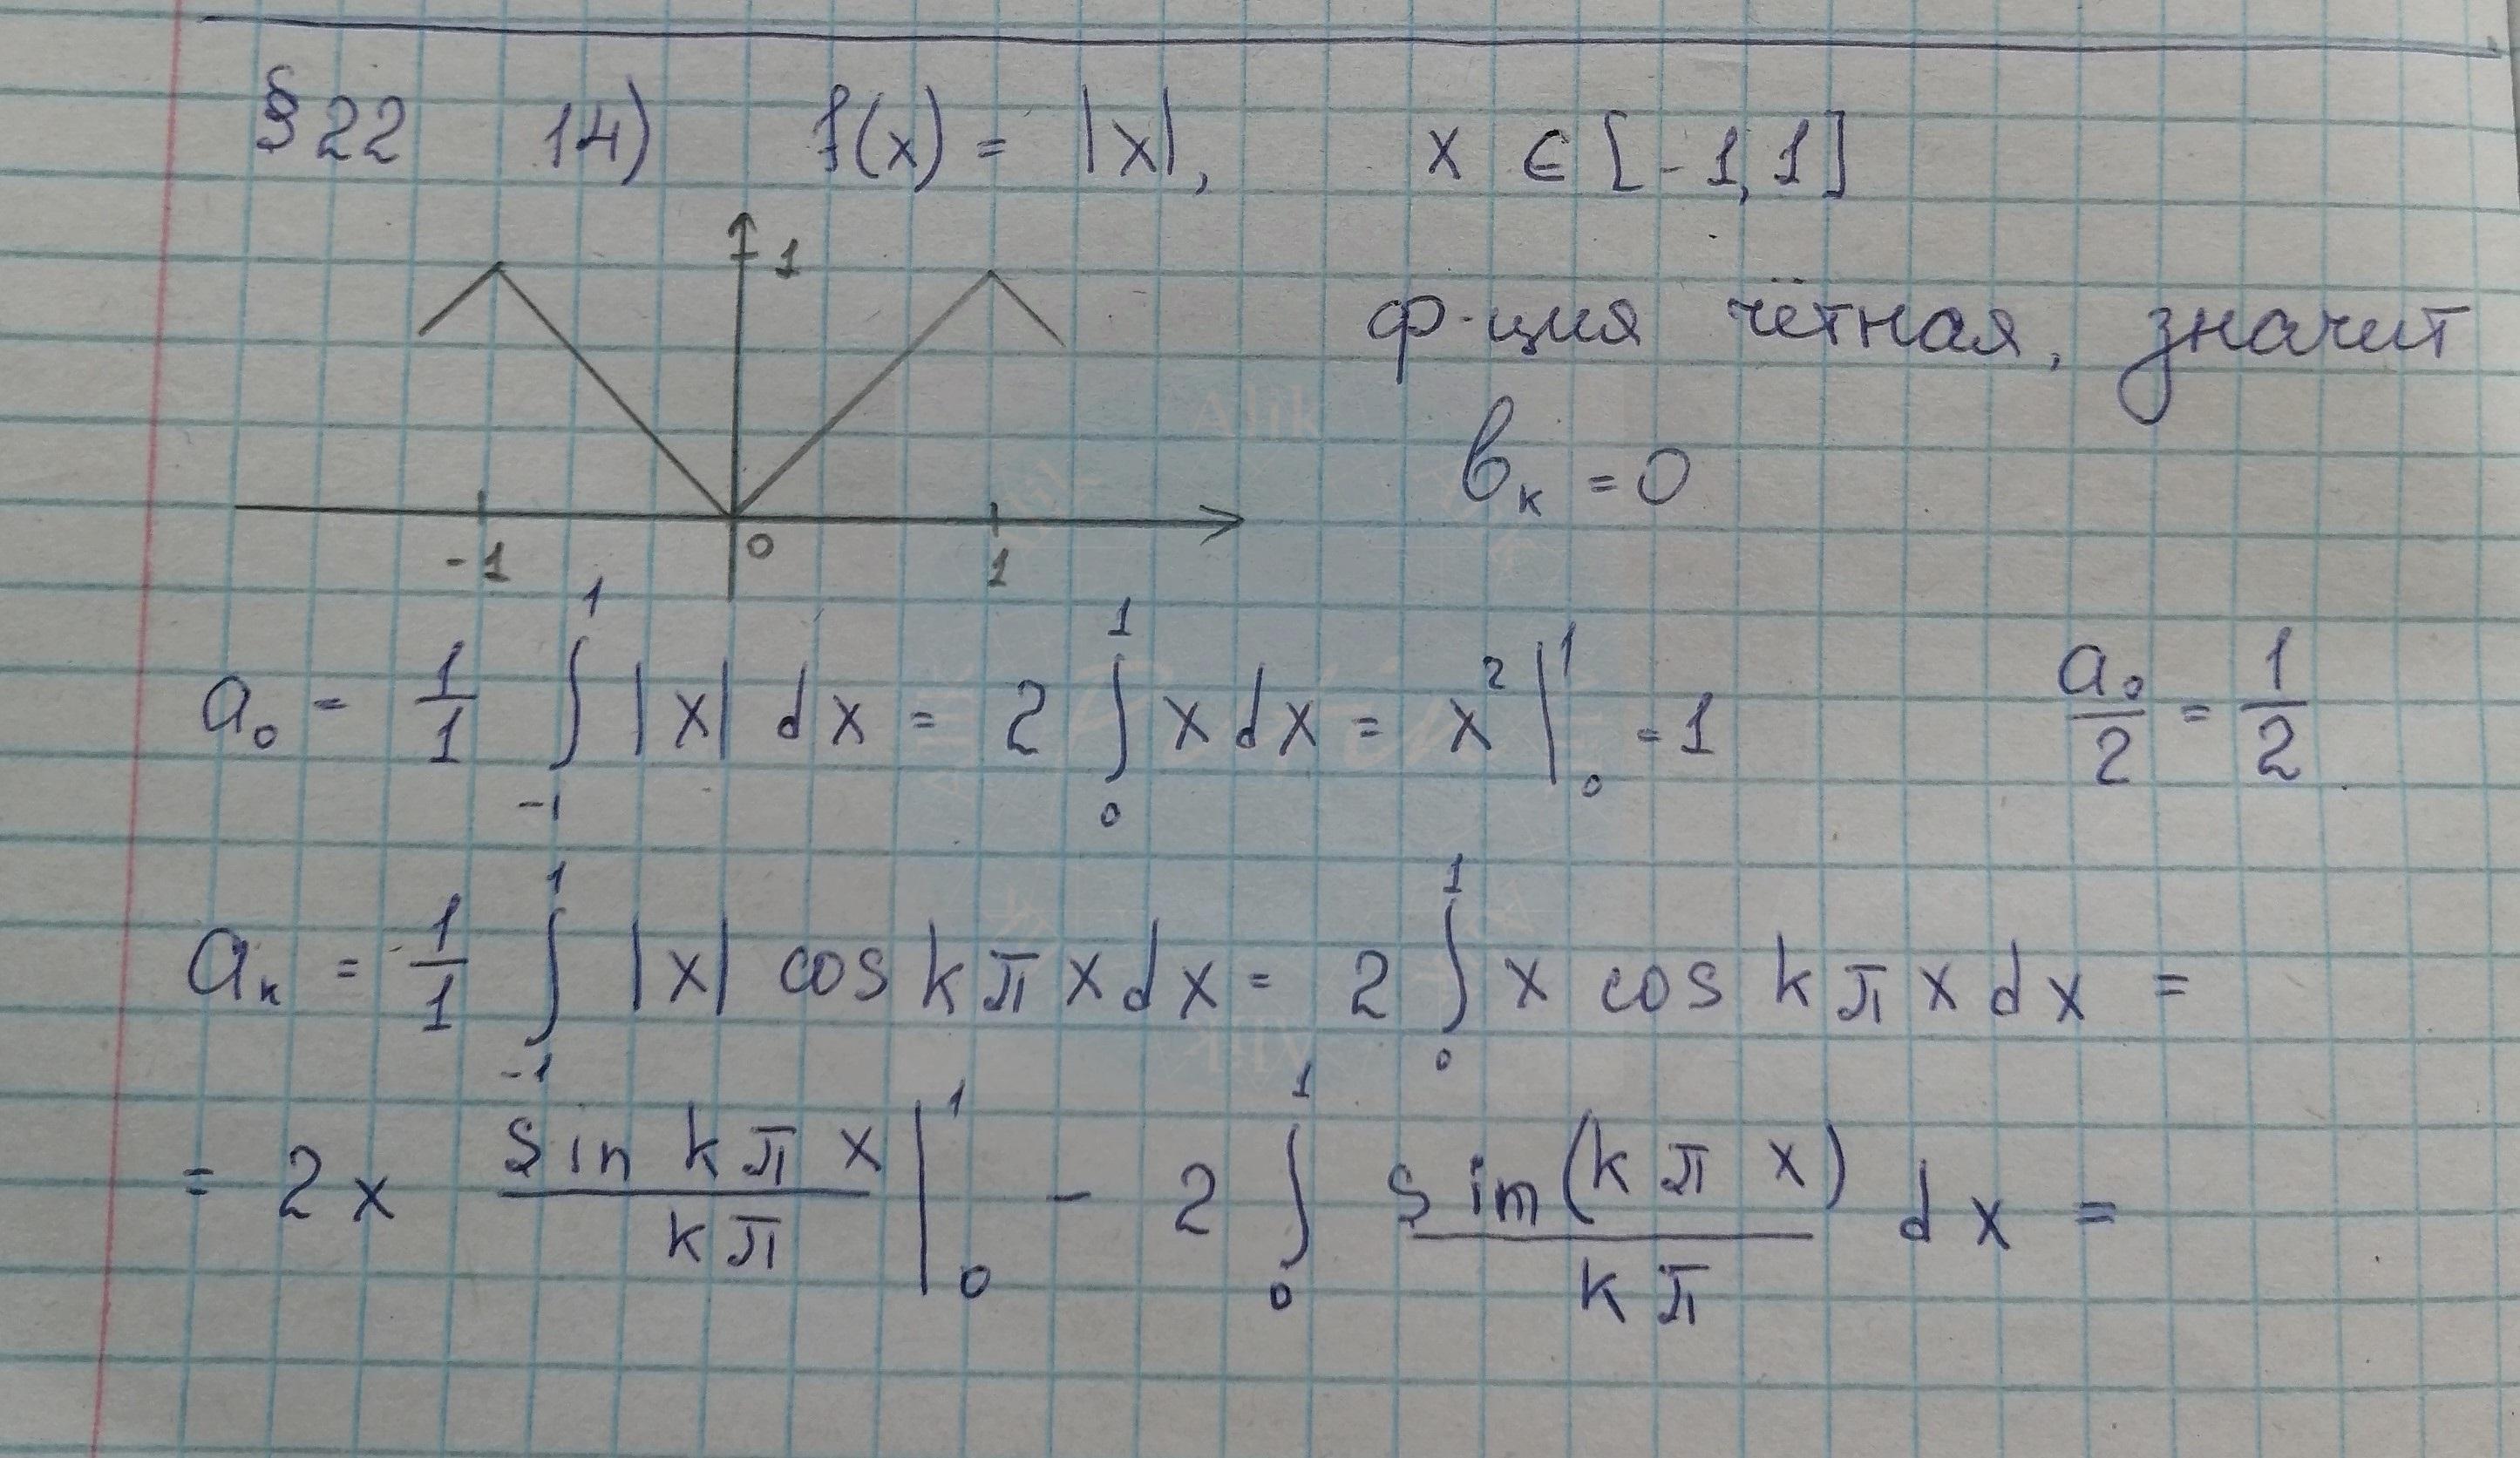 §22 14) f(x) = |x|, x ∈ [-1,1]
1
ф-ция чётная, значит
b_k = 0
-1 0 1
a_0 = 1/1 ∫_{-1}^{1} |x| dx = 2 ∫_0^1 x dx = x^2 |_0^1 = 1 a_0/2 = 1/2
a_k = 1/1 ∫_{-1}^{1} |x| cos kπx dx = 2 ∫_0^1 x cos kπx dx =
= 2x (sin kπx)/(kπ) |_0^1 - 2 ∫_0^1 (sin(kπx))/(kπ) dx =
Alik
Alik
Alik